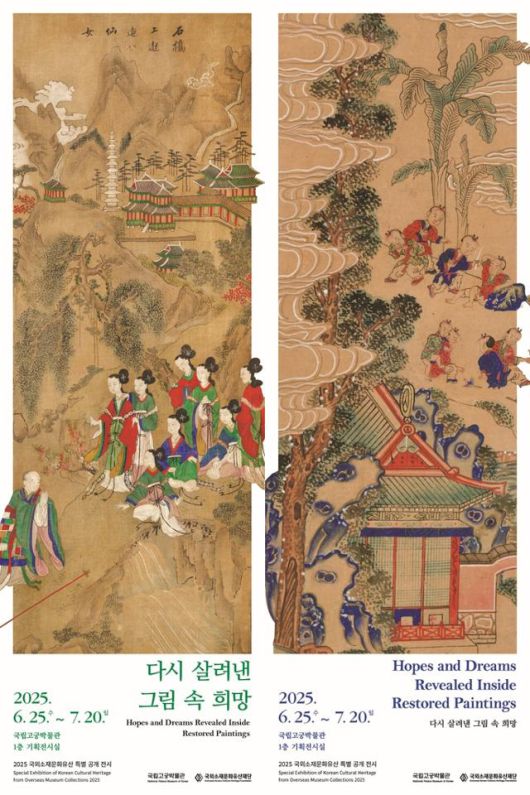 石橋上邂逅八仙女
다시 살려낸
그림 속 희망
Hopes and Dreams Revealed Inside
Restored Paintings
2025.
6. 25.수 ~ 7. 20.일
국립고궁박물관
1층 기획전시실
2025 국외소재문화유산 특별 공개 전시
Special Exhibition of Korean Cultural Heritage
from Overseas Museum Collections 2025
국립고궁박물관
국외소재문화유산재단
Hopes and Dreams
Revealed Inside
Restored Paintings
다시 살려낸 그림 속 희망
2025.
6. 25.수 ~ 7. 20.일
국립고궁박물관
1층 기획전시실
2025 국외소재문화유산 특별 공개 전시
Special Exhibition of Korean Cultural Heritage
from Overseas Museum Collections 2025
국립고궁박물관
국외소재문화유산재단